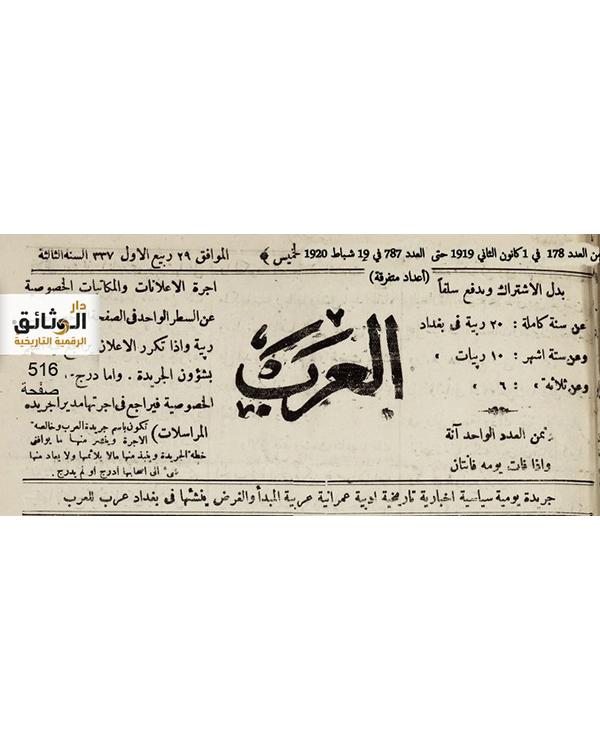 من العدد 178 في 1 كانون الثاني 1919 حتى العدد 787 في 19 شباط 1920 لخميس
الموافق ٢٩ ربيع الاول ٣٣٧ السنه الثالثة
(أعداد متفرقة)
بدل الاشتراك ويدفع سلفاً
عن سنة كاملة : ٢٠ ربية فى بغداد
وعن ستة اشهر : ١٠ ربيات »
وعن ثلاثة » : ٦ »
ثمن العدد الواحد آنة
واذا فات يومه فآنتان
العرب
اجرة الاعلانات والمكاتبات الخصوصية
عن السطر الواحد فى الصفحة
ربية واذا تكرر الاعلان
بشؤون الجريدة . واما درج
الخصوصية فيراجع فى اجرتها مدير الجريده
المراسلات) تكون باسم جريدة العرب وخالصة
الاجرة وينشر منها ما يوافق
خطة الجريدة وينبذ منها مالا يلائمها ولا يعاد منها
شى الى اصحابها ادرج او لم يدرج .
دار
الوثائق
الرقمية التاريخية
516
صفحة
جريدة يومية سياسية اخبارية تاريخية ادبية عمرانية عربية المبدأ والغرض ينشئها فى بغداد عرب للعرب